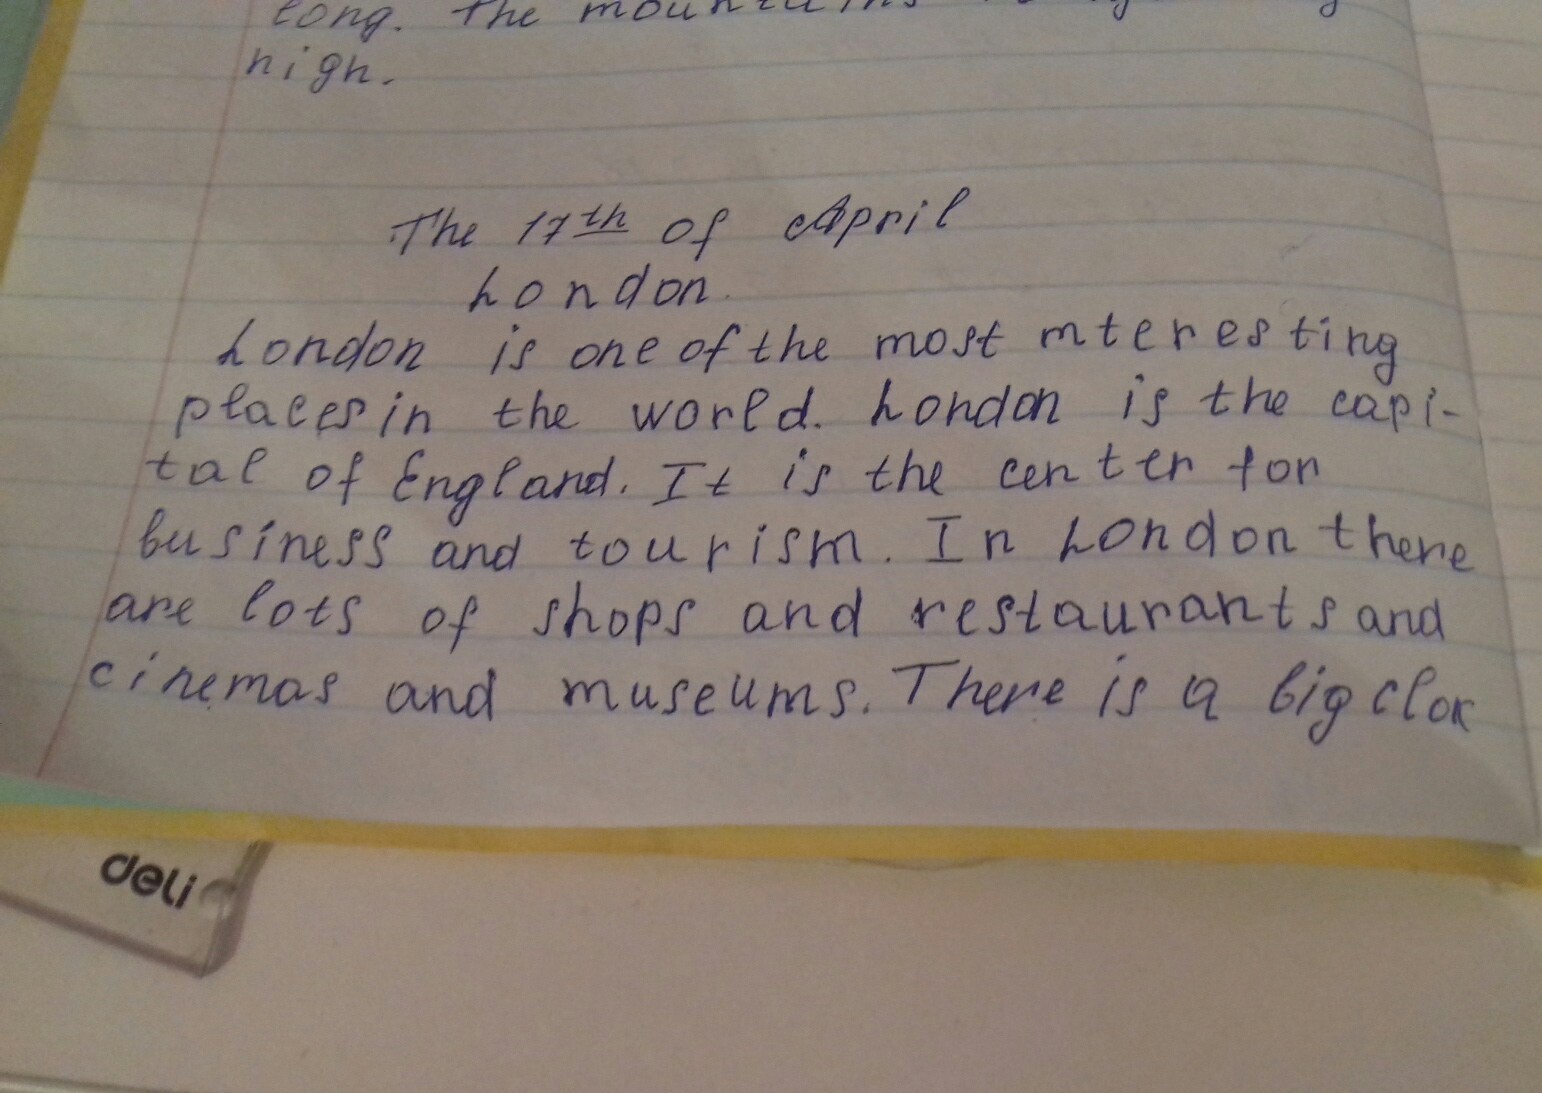 long. The mountains
high.
The 17th of April
London.
London is one of the most mteresting
places in the world. London is the capi-
tal of England. It is the center for
business and tourism. In London there
are lots of shops and restaurants and
cinemas and museums. There is a big clok
deli